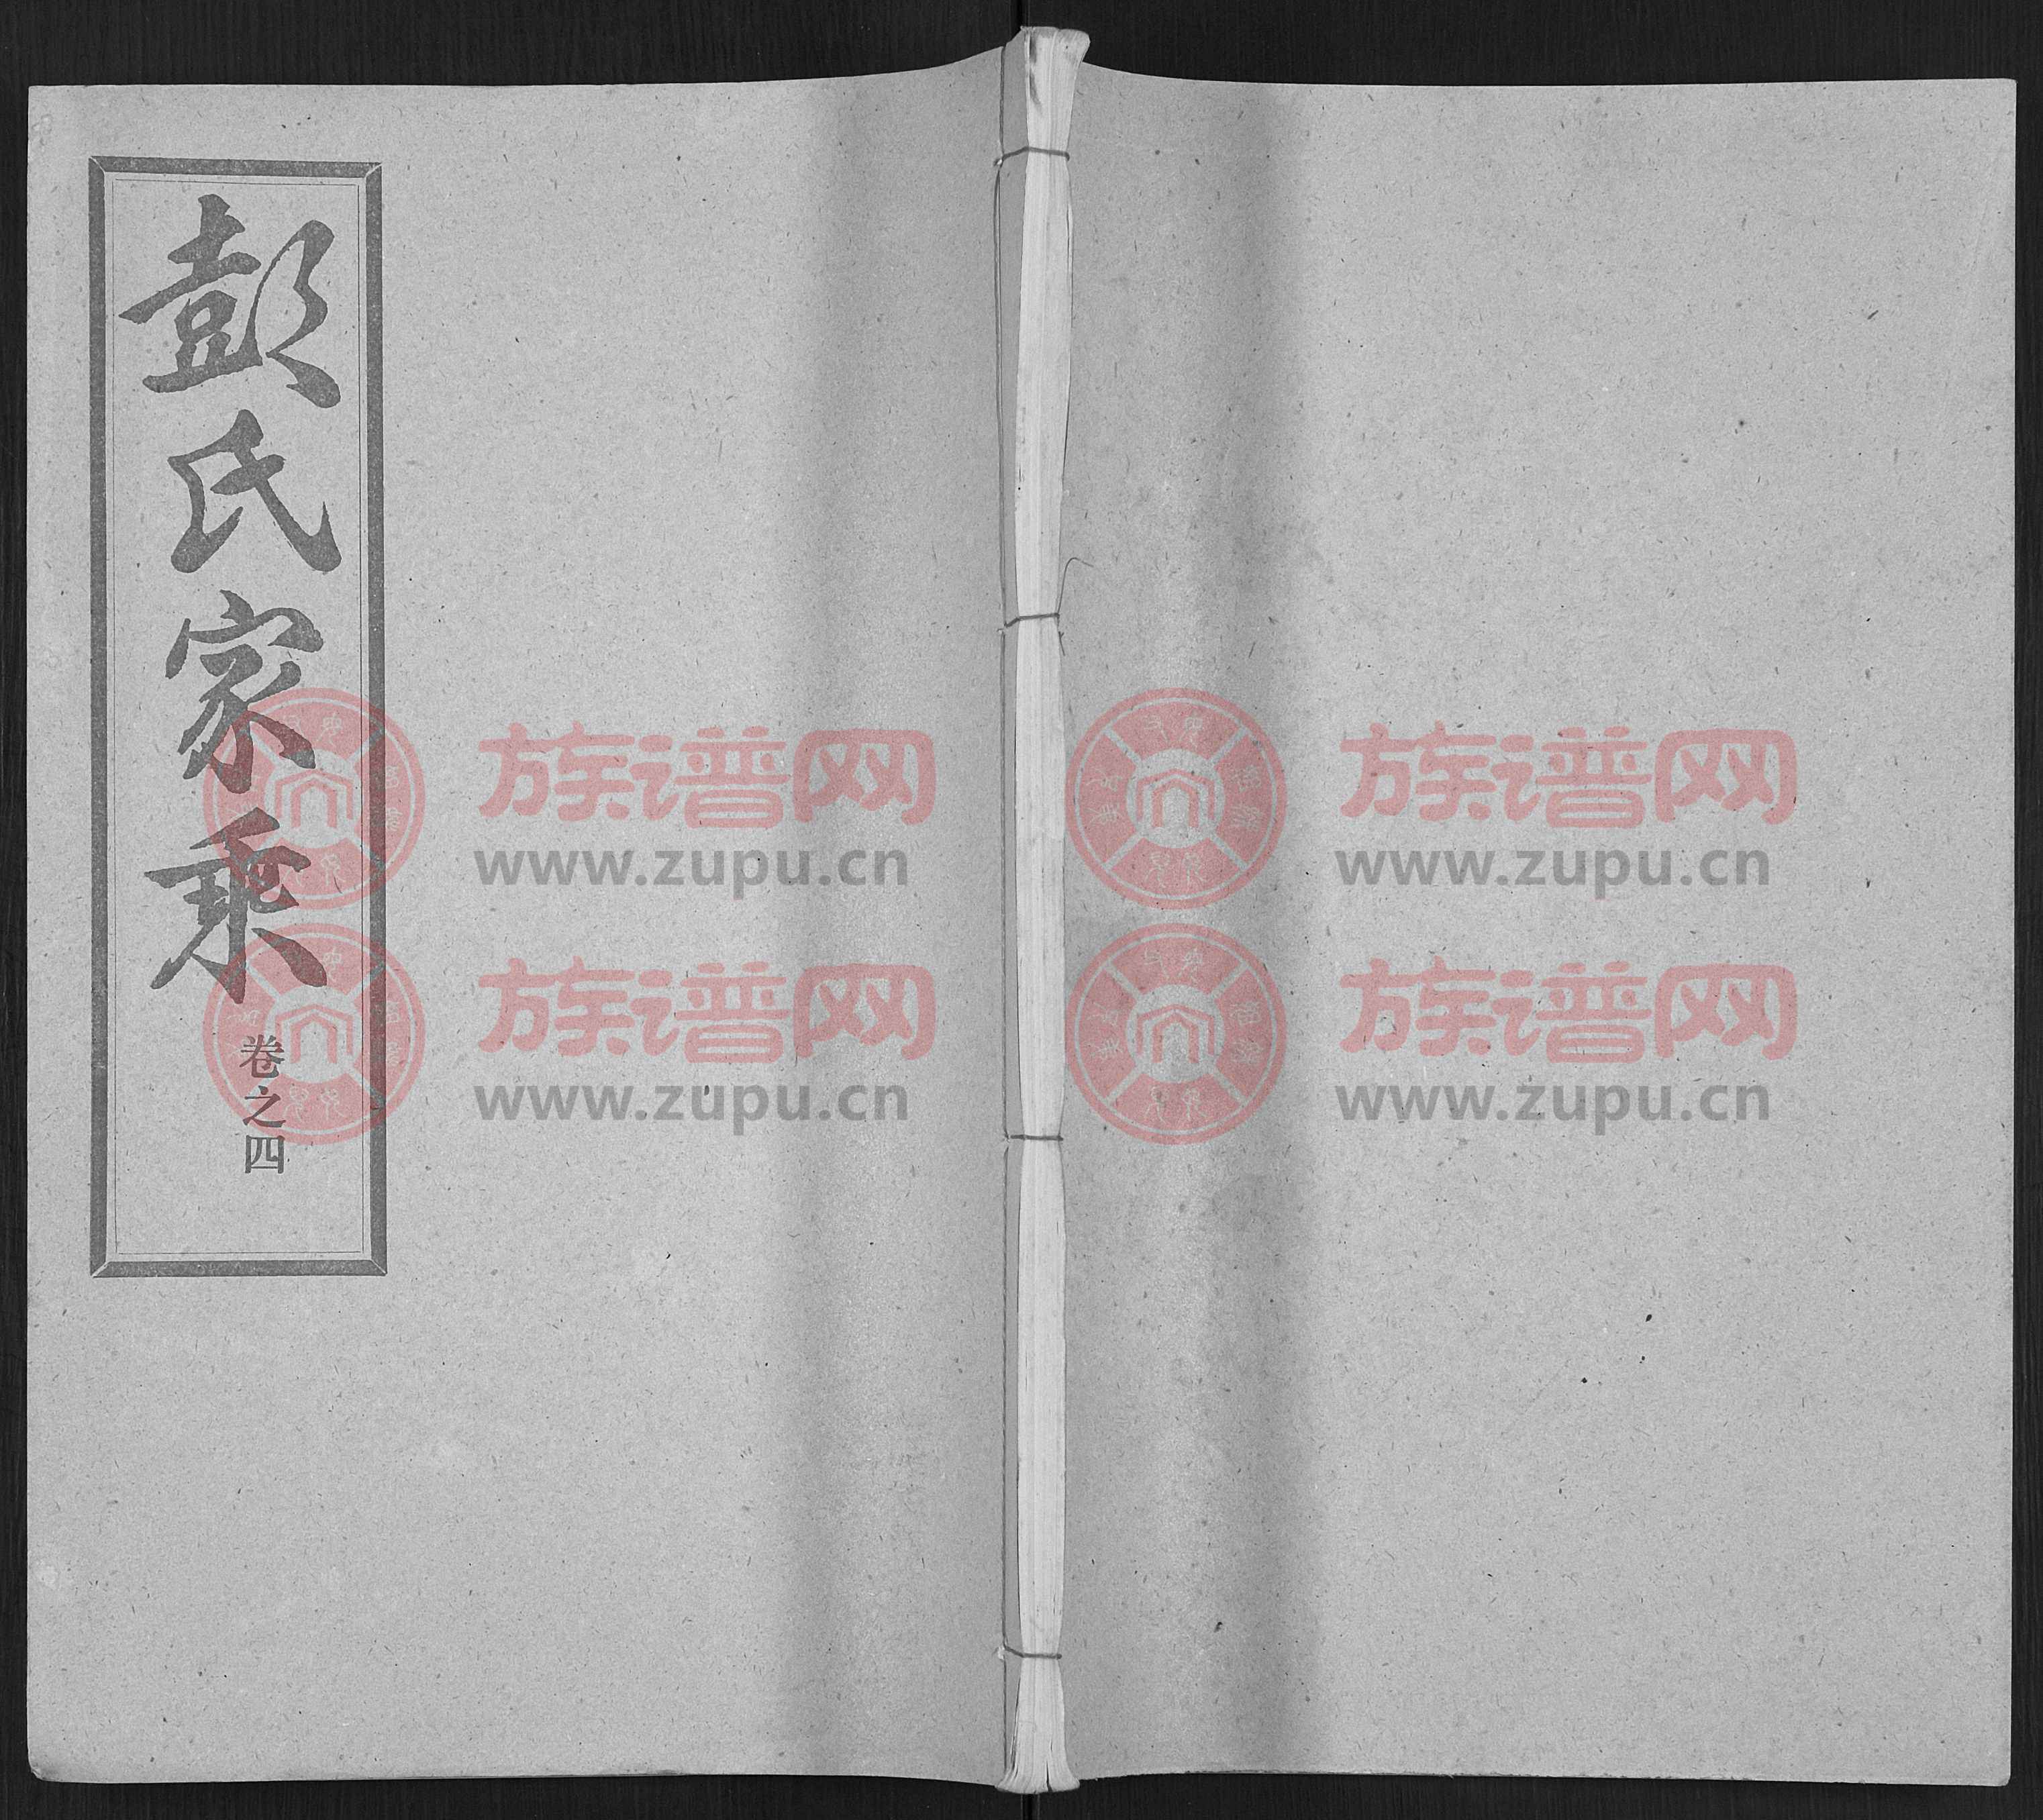 彭氏家乘
卷之四
族谱网
www.zupu.cn
族谱网
www.zupu.cn
族谱网
www.zupu.cn
族谱网
www.zupu.cn